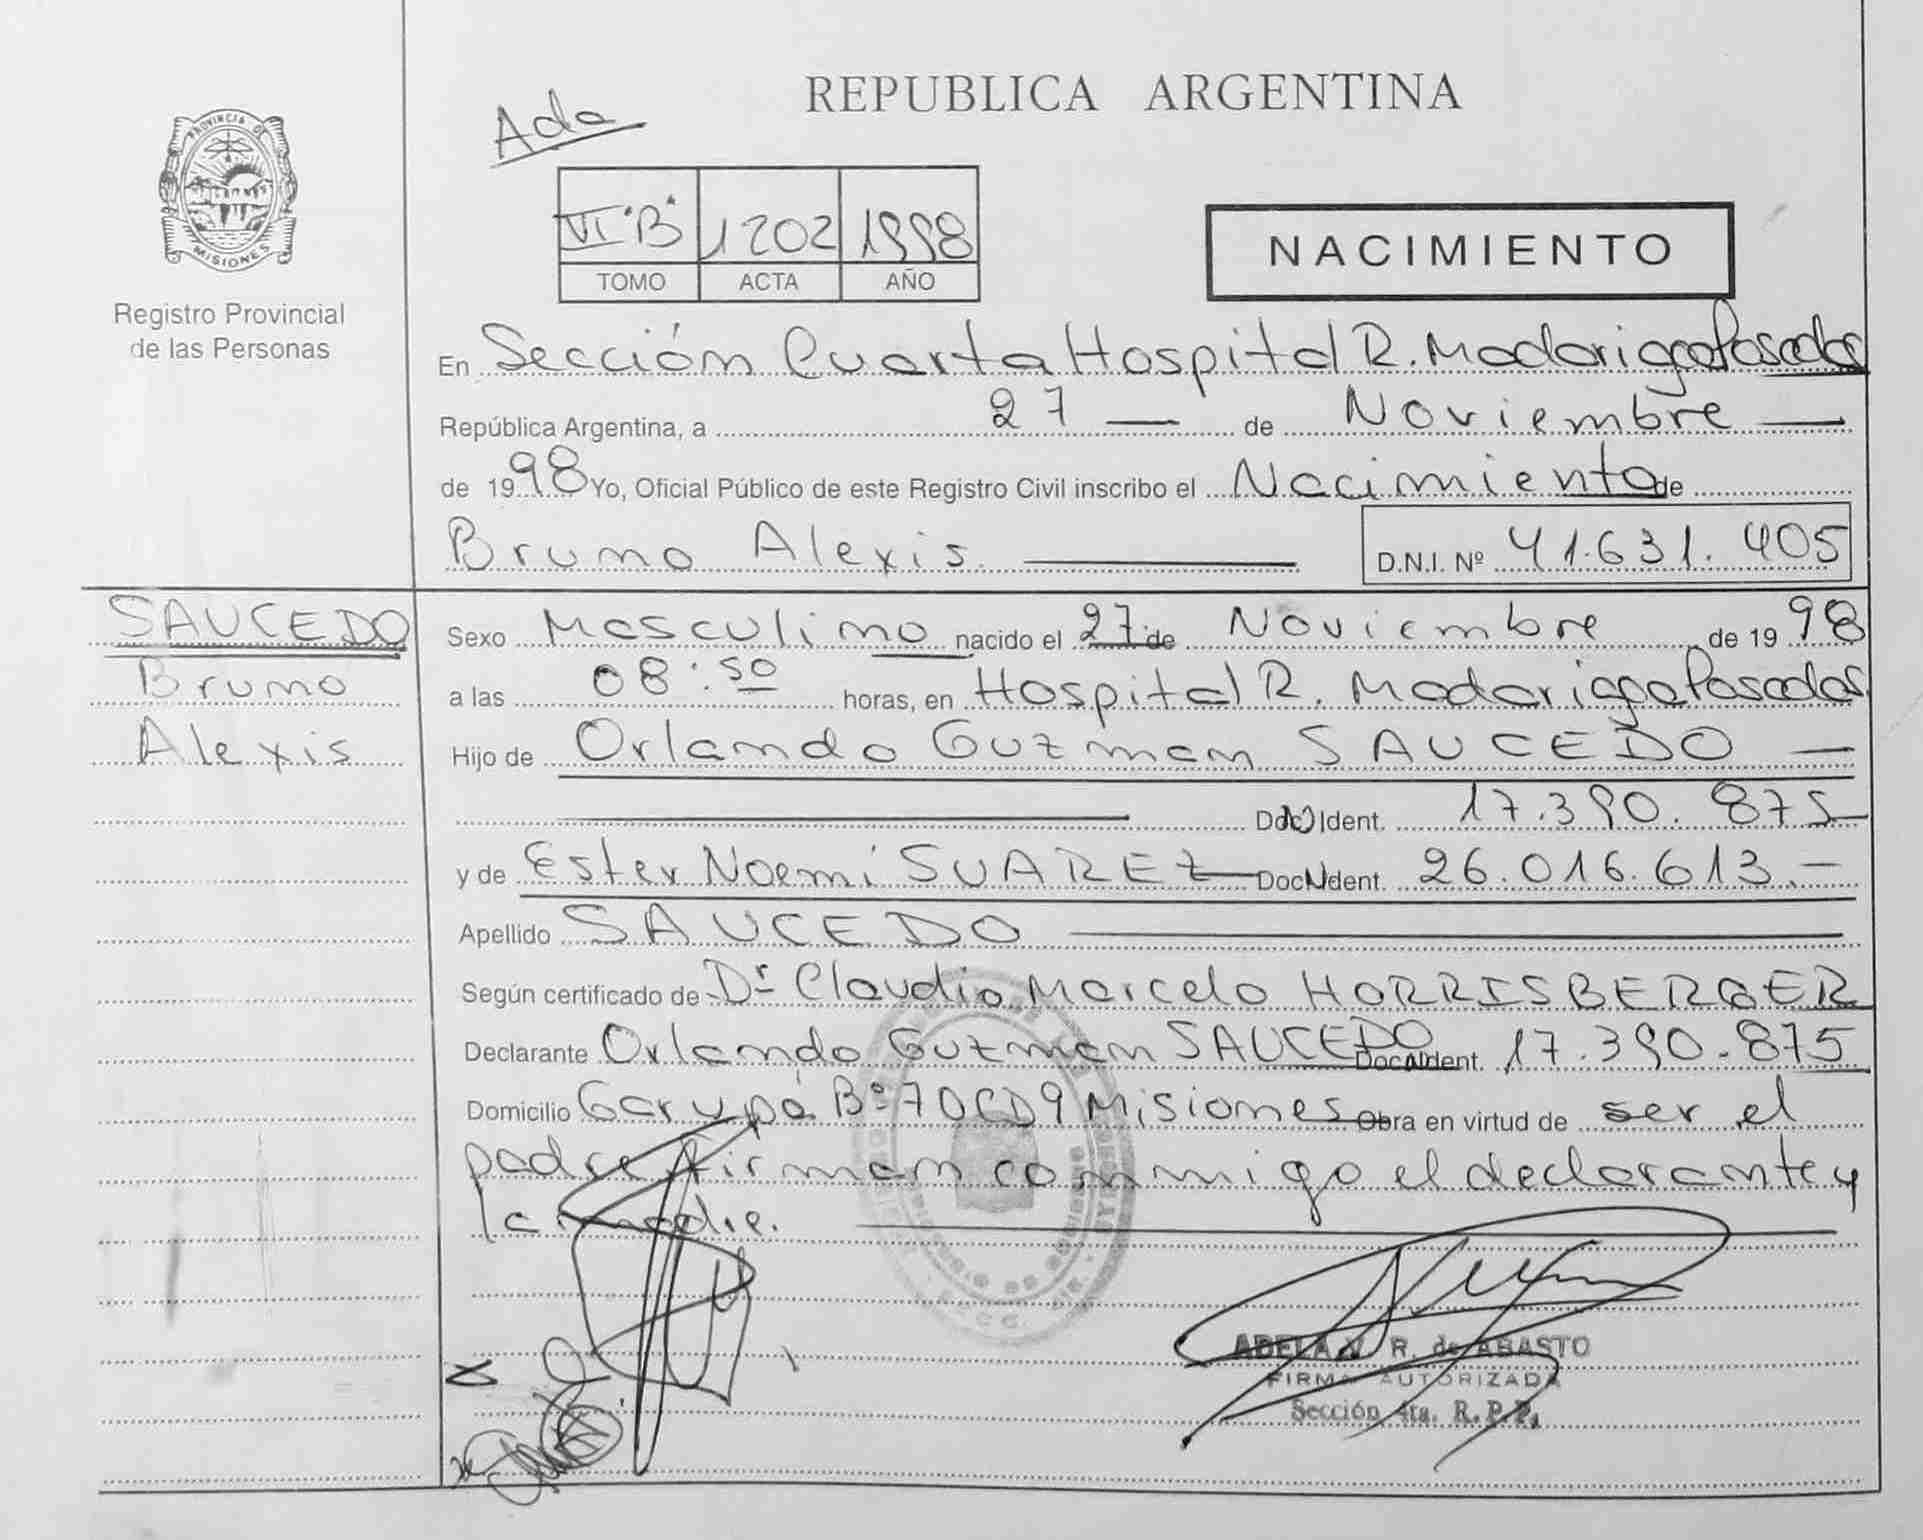 PROVINCIA DE
MISIONES
Registro Provincial
de las Personas
REPUBLICA ARGENTINA
Ada
VI "B" 1202 1998
TOMO ACTA AÑO
NACIMIENTO
En Sección Cuarta Hospital R. Madariaga Posadas
República Argentina, a 27 — de Noviembre —
de 1998 Yo, Oficial Público de este Registro Civil inscribo el Nacimiento de
Bruno Alexis. — D.N.I. Nº 41.631.405
SAUCEDO
Bruno
Alexis
Sexo Masculino nacido el 27 de Noviembre de 1998
a las 08:50 horas, en Hospital R. Madariaga Posadas
Hijo de Orlando Guzman SAUCEDO —
— Doc. Ident. 17.390.875
y de Ester Noemí SUAREZ — Doc. Ident. 26.016.613.-
Apellido SAUCEDO —
Según certificado de Dr Claudio Marcelo HORRISBERGER
Declarante Orlando Guzman SAUCEDO Doc. Ident. 17.390.875
Domicilio Garupá Bº 70 CD9 Misiones Obra en virtud de ser el
padre firman conmigo el declarante y
la madre. —
ADELA V. R. de ABASTO
FIRMA AUTORIZADA
Sección 4ta. R.P.P.